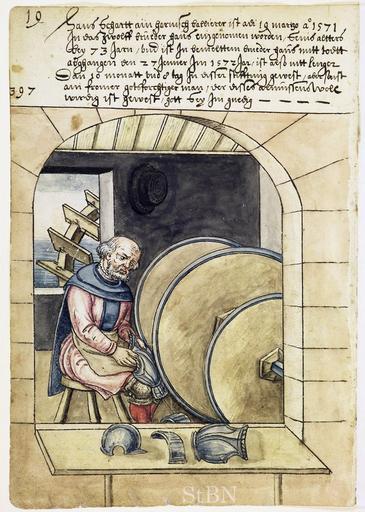 10
Hans Schartt ain harnisch ballierer ist auf 19 marzo a° 1571
In das zwölff brueder haus eingenomen worden, seins alters
bey 73 Jarn, und ist In vermeltten brueder haus mitt todtt
abgangen den 27 Jenner Im 1572 Jar, ist also nitt lenger
Dan 10 monatt und 8 tag In disser stifftung gewest, aber sonst
397
ain fromer gotsforchtiger man, der disses almussens woll
wirdig ist gewest, gott sey Im gnedig
StBN